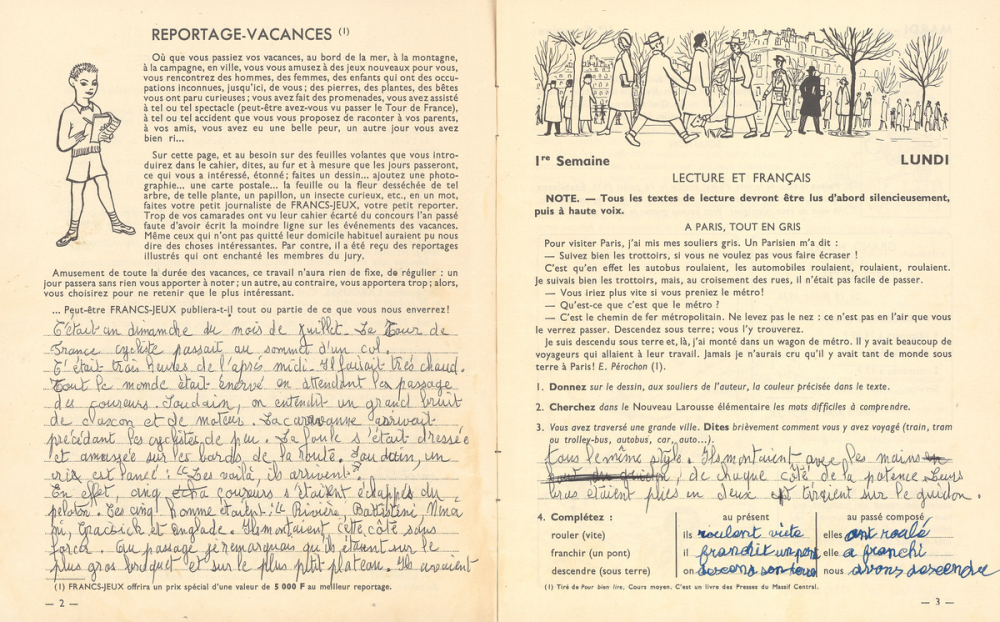 REPORTAGE-VACANCES (1)
Où que vous passiez vos vacances, au bord de la mer, à la montagne,
à la campagne, en ville, vous vous amusez à des jeux nouveaux pour vous,
vous rencontrez des hommes, des femmes, des enfants qui ont des occu-
pations inconnues, jusqu'ici, de vous ; des pierres, des plantes, des bêtes
vous ont paru curieuses ; vous avez fait des promenades, vous avez assisté
à tel ou tel spectacle (peut-être avez-vous vu passer le Tour de France),
à tel ou tel accident que vous vous proposez de raconter à vos parents,
à vos amis, vous avez eu une belle peur, un autre jour vous avez
bien ri...
Sur cette page, et au besoin sur des feuilles volantes que vous intro-
duirez dans le cahier, dites, au fur et à mesure que les jours passeront,
ce qui vous a intéressé, étonné ; faites un dessin... ajoutez une photo-
graphie... une carte postale... la feuille ou la fleur desséchée de tel
arbre, de telle plante, un papillon, un insecte curieux, etc., en un mot,
faites votre petit journaliste de FRANCS-JEUX, votre petit reporter.
Trop de vos camarades ont vu leur cahier écarté du concours l'an passé
faute d'avoir écrit la moindre ligne sur les événements des vacances.
Même ceux qui n'ont pas quitté leur domicile habituel auraient pu nous
dire des choses intéressantes. Par contre, il a été reçu des reportages
illustrés qui ont enchanté les membres du jury.
Amusement de toute la durée des vacances, ce travail n'aura rien de fixe, de régulier : un
jour passera sans rien vous apporter à noter ; un autre, au contraire, vous apportera trop ; alors,
vous choisirez pour ne retenir que le plus intéressant.
... Peut-être FRANCS-JEUX publiera-t-il tout ou partie de ce que vous nous enverrez!
C'était un dimanche du mois de Juillet. Le Tour de
France cycliste passait au sommet d'un col.
C'était trois heures de l'après midi. Il faisait très chaud.
Tout le monde était énervé en attendant le passage
des coureurs. Soudain, on entendit un grand bruit
de claxon et de moteur. La caravanne arrivait
précédant les cyclistes de peu. La foule s'était dressée
et amassée sur les bords de la route. Soudain, un
cri est lancé : "Les voilà, ils arrivent".
En effet, cinq coureurs s'étaient échappés du
peloton. Ces cinq homme étaient : Rivière, Battistini, Nenci
ni, Graczick et Anglade. Ils montaient cette côte sans
forcer. Au passage je remarquais qu'ils étaient sur le
plus gros braquet et sur le plus petit plateau. Ils avaient
(1) FRANCS-JEUX offrira un prix spécial d'une valeur de 5 000 F au meilleur reportage.
— 2 —
1re Semaine LUNDI
LECTURE ET FRANÇAIS
NOTE. — Tous les textes de lecture devront être lus d'abord silencieusement,
puis à haute voix.
A PARIS, TOUT EN GRIS
Pour visiter Paris, j'ai mis mes souliers gris. Un Parisien m'a dit :
— Suivez bien les trottoirs, si vous ne voulez pas vous faire écraser !
C'est qu'en effet les autobus roulaient, les automobiles roulaient, roulaient, roulaient.
Je suivais bien les trottoirs, mais, au croisement des rues, il n'était pas facile de passer.
— Vous iriez plus vite si vous preniez le métro!
— Qu'est-ce que c'est que le métro ?
— C'est le chemin de fer métropolitain. Ne levez pas le nez : ce n'est pas en l'air que vous
le verrez passer. Descendez sous terre ; vous l'y trouverez.
Je suis descendu sous terre et, là, j'ai monté dans un wagon de métro. Il y avait beaucoup de
voyageurs qui allaient à leur travail. Jamais je n'aurais cru qu'il y avait tant de monde sous
terre à Paris! E. Pérochon (1).
1. Donnez sur le dessin, aux souliers de l'auteur, la couleur précisée dans le texte.
2. Cherchez dans le Nouveau Larousse élémentaire les mots difficiles à comprendre.
3. Vous avez traversé une grande ville. Dites brièvement comment vous y avez voyagé (train, tram
ou trolley-bus, autobus, car, auto...).
tous le même style. Ils montaient avec les mains
de chaque côté de la potence. Leurs
bras étaient pliés en deux et tiraient sur le guidon.
4. Complétez : au présent au passé composé
rouler (vite) ils roulent vite elles ont roulé
franchir (un pont) il franchit un pont elle a franchi
descendre (sous terre) on nous avons descendre
(1) Tiré de Pour bien lire, Cours moyen. C'est un livre des Presses du Massif Central.
— 3 —